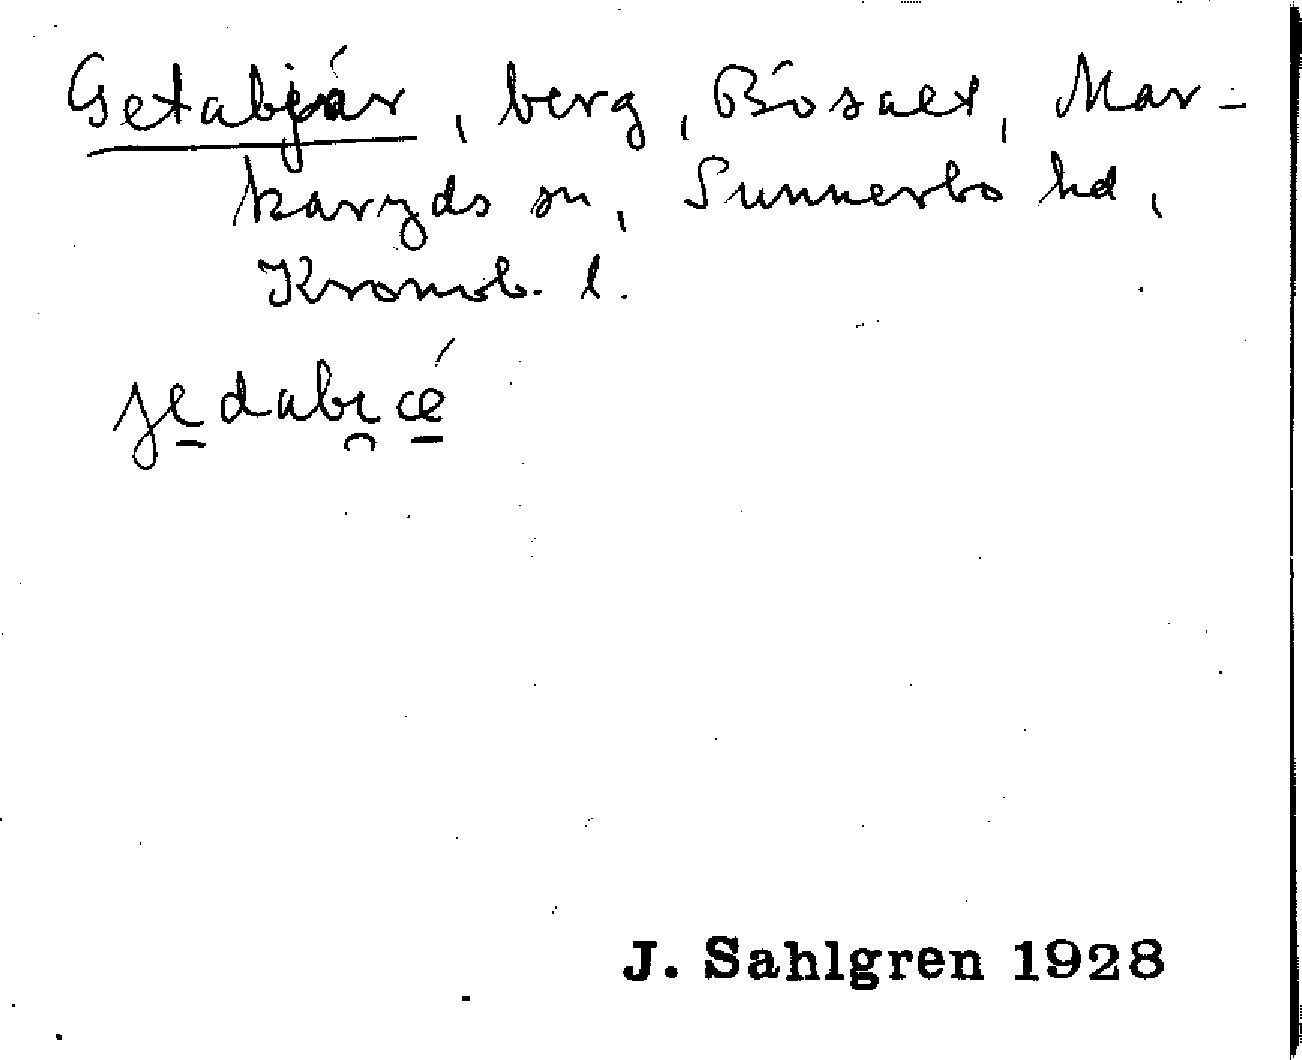 Getabjär, berg, Bösaet, Mar-
karyds sn, Sunnerbo hd,
Kronob. l.
J. Sahlgren 1928